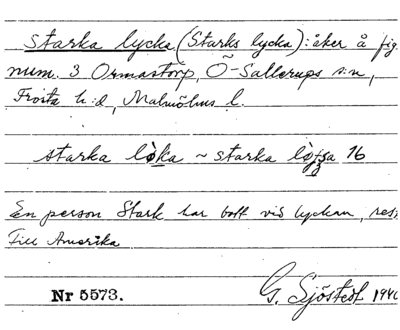 Starka lycka (Starks lycka): åker å fig.
num. 3 Ormastorp, Ö-Sallerups s:n,
Frosta h:d, Malmöhus l.
starka ~ starka 16
En person Stark har bott vid lyckan, rest
till Amerika
Nr 5573.
G. Sjöstedt 1940